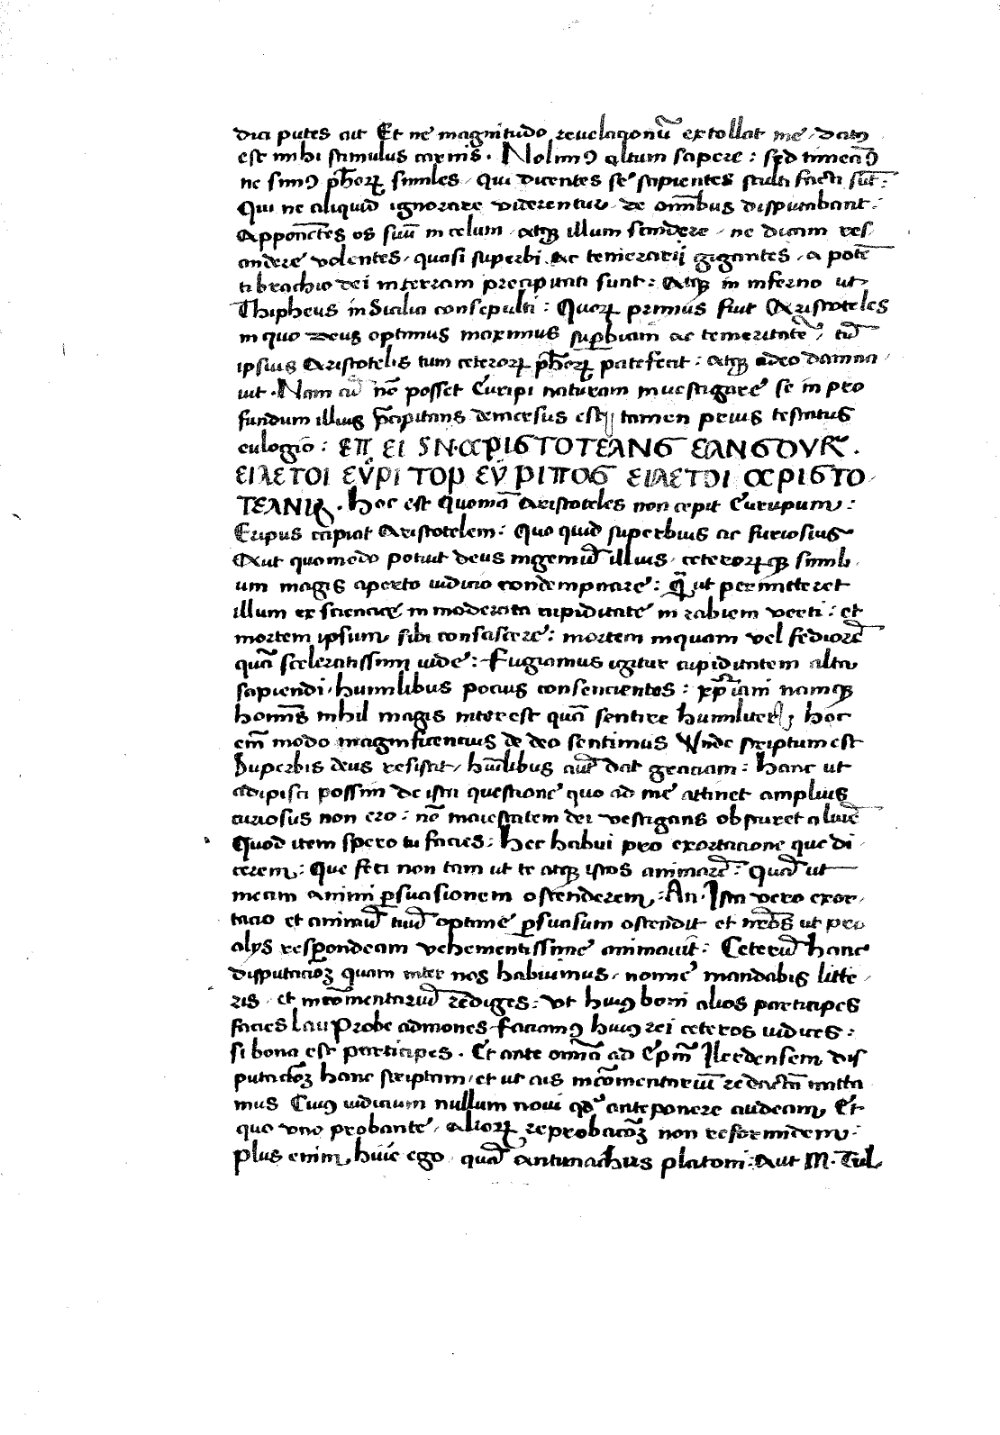 dici putes ait Et ne magnitudo reuelacionū extollat me / datꝯ
est mihi stimulus carnis . Nolimꝯ altum sapere : sed timeamꝯ
ne simꝯ ph̄orꝝ similes / qui dicentes se sapientes stulti facti sūt :
Qui ne aliquid ignorare viderentur / de omībus disputabant :
Apponētes os suū in celum / atqꝫ illum scandere / ne dicam res
andere volentes / quasi superbi ac temerarij gigantes / a potē
ti brachio dei in terram precipitati sunt : Atqꝫ in inferno ut
Thipheus in Sicilia consepulti : Quorꝝ primus fuit Aristoteles
in quo deus optimus maximus sup̄biam ac temeritatē / tū
ipsius Aristotelis tum ceterorꝝ ph̄orꝝ patefecit : atqꝫ adeo damna
uit . Nam cū nō posset Euripi naturam inuestigare se in pro
fundum illius p̄cipitans demersus est / tamen prius testatus
eulogio :
ΕΙΛΕΤΟΙ ΕΥΡΙΤΟΡ ΕΥΡΙΠΟС ΕΙΛΕΤΟΙ ΑΡΙСΤΟ
hoc est Quoniā Aristoteles non cepit Eurupum :
Eripus capiat Aristotelem : Quo quid superbius ac furiosius
Aut quomodo potuit deus ingeniū illius / ceterorꝝqꝫ simili
um magis aperto iudicio condempnare : Q̄ ut permitteret
illum ex sciencie in moderata cupiditate in rabiem verti : et
mortem ipsum sibi consciscere : mortem inquam vel fediorē
quā sceleratissimi uide : Fugiamus igitur cupiditatem alta
sapiendi / humilibus pocius consencientes : xp̄iani namqꝫ
hominis nihil magis interest quā sentire humiliter / hoc
em̄ modo magnificencius de deo sentimus Vnde scriptum est
Superbis deus resistit / hūilibus autē dat graciam : Hanc ut
adipisci possim de ista questione quo ad me attinet amplius
curiosus non ero : nō maiestatem dei vestigans obscuret a luīe
Quod item spero tu facies : Hec habui pro exortacione que di
cerem : Que feci non tam ut te atqꝫ istos animarē : Quā ut
meam animi p̄suasionem ostenderem / An. Ista vero exor
tacio et animū tuū optime p̄suasum ostendit et nobis ut pro
alijs respondeam vehementissime animauit : Ceterū hanc
disputacioꝫ quam inter nos habuimus / nonne mandabis litte
ris / et in cōmentariū rediges : vt huiꝯ boni alios participes
facies Lau Probe admones faciamꝯ huiꝯ rei ceteros iudices :
si bona est participes . Et ante omia ad Ep̄m Ilerdensem dis
putacōꝫ hanc scriptam / et ut ais in cōmentariū redactā mitta
mus Cuiꝯ iudicium nullum noui qd anteponere audeam / Et
quo vno probante / aliorꝝ reprobacōꝫ non reformidem :
plus enim huic ego / quā Antimachus platoni : Aut M. Tul